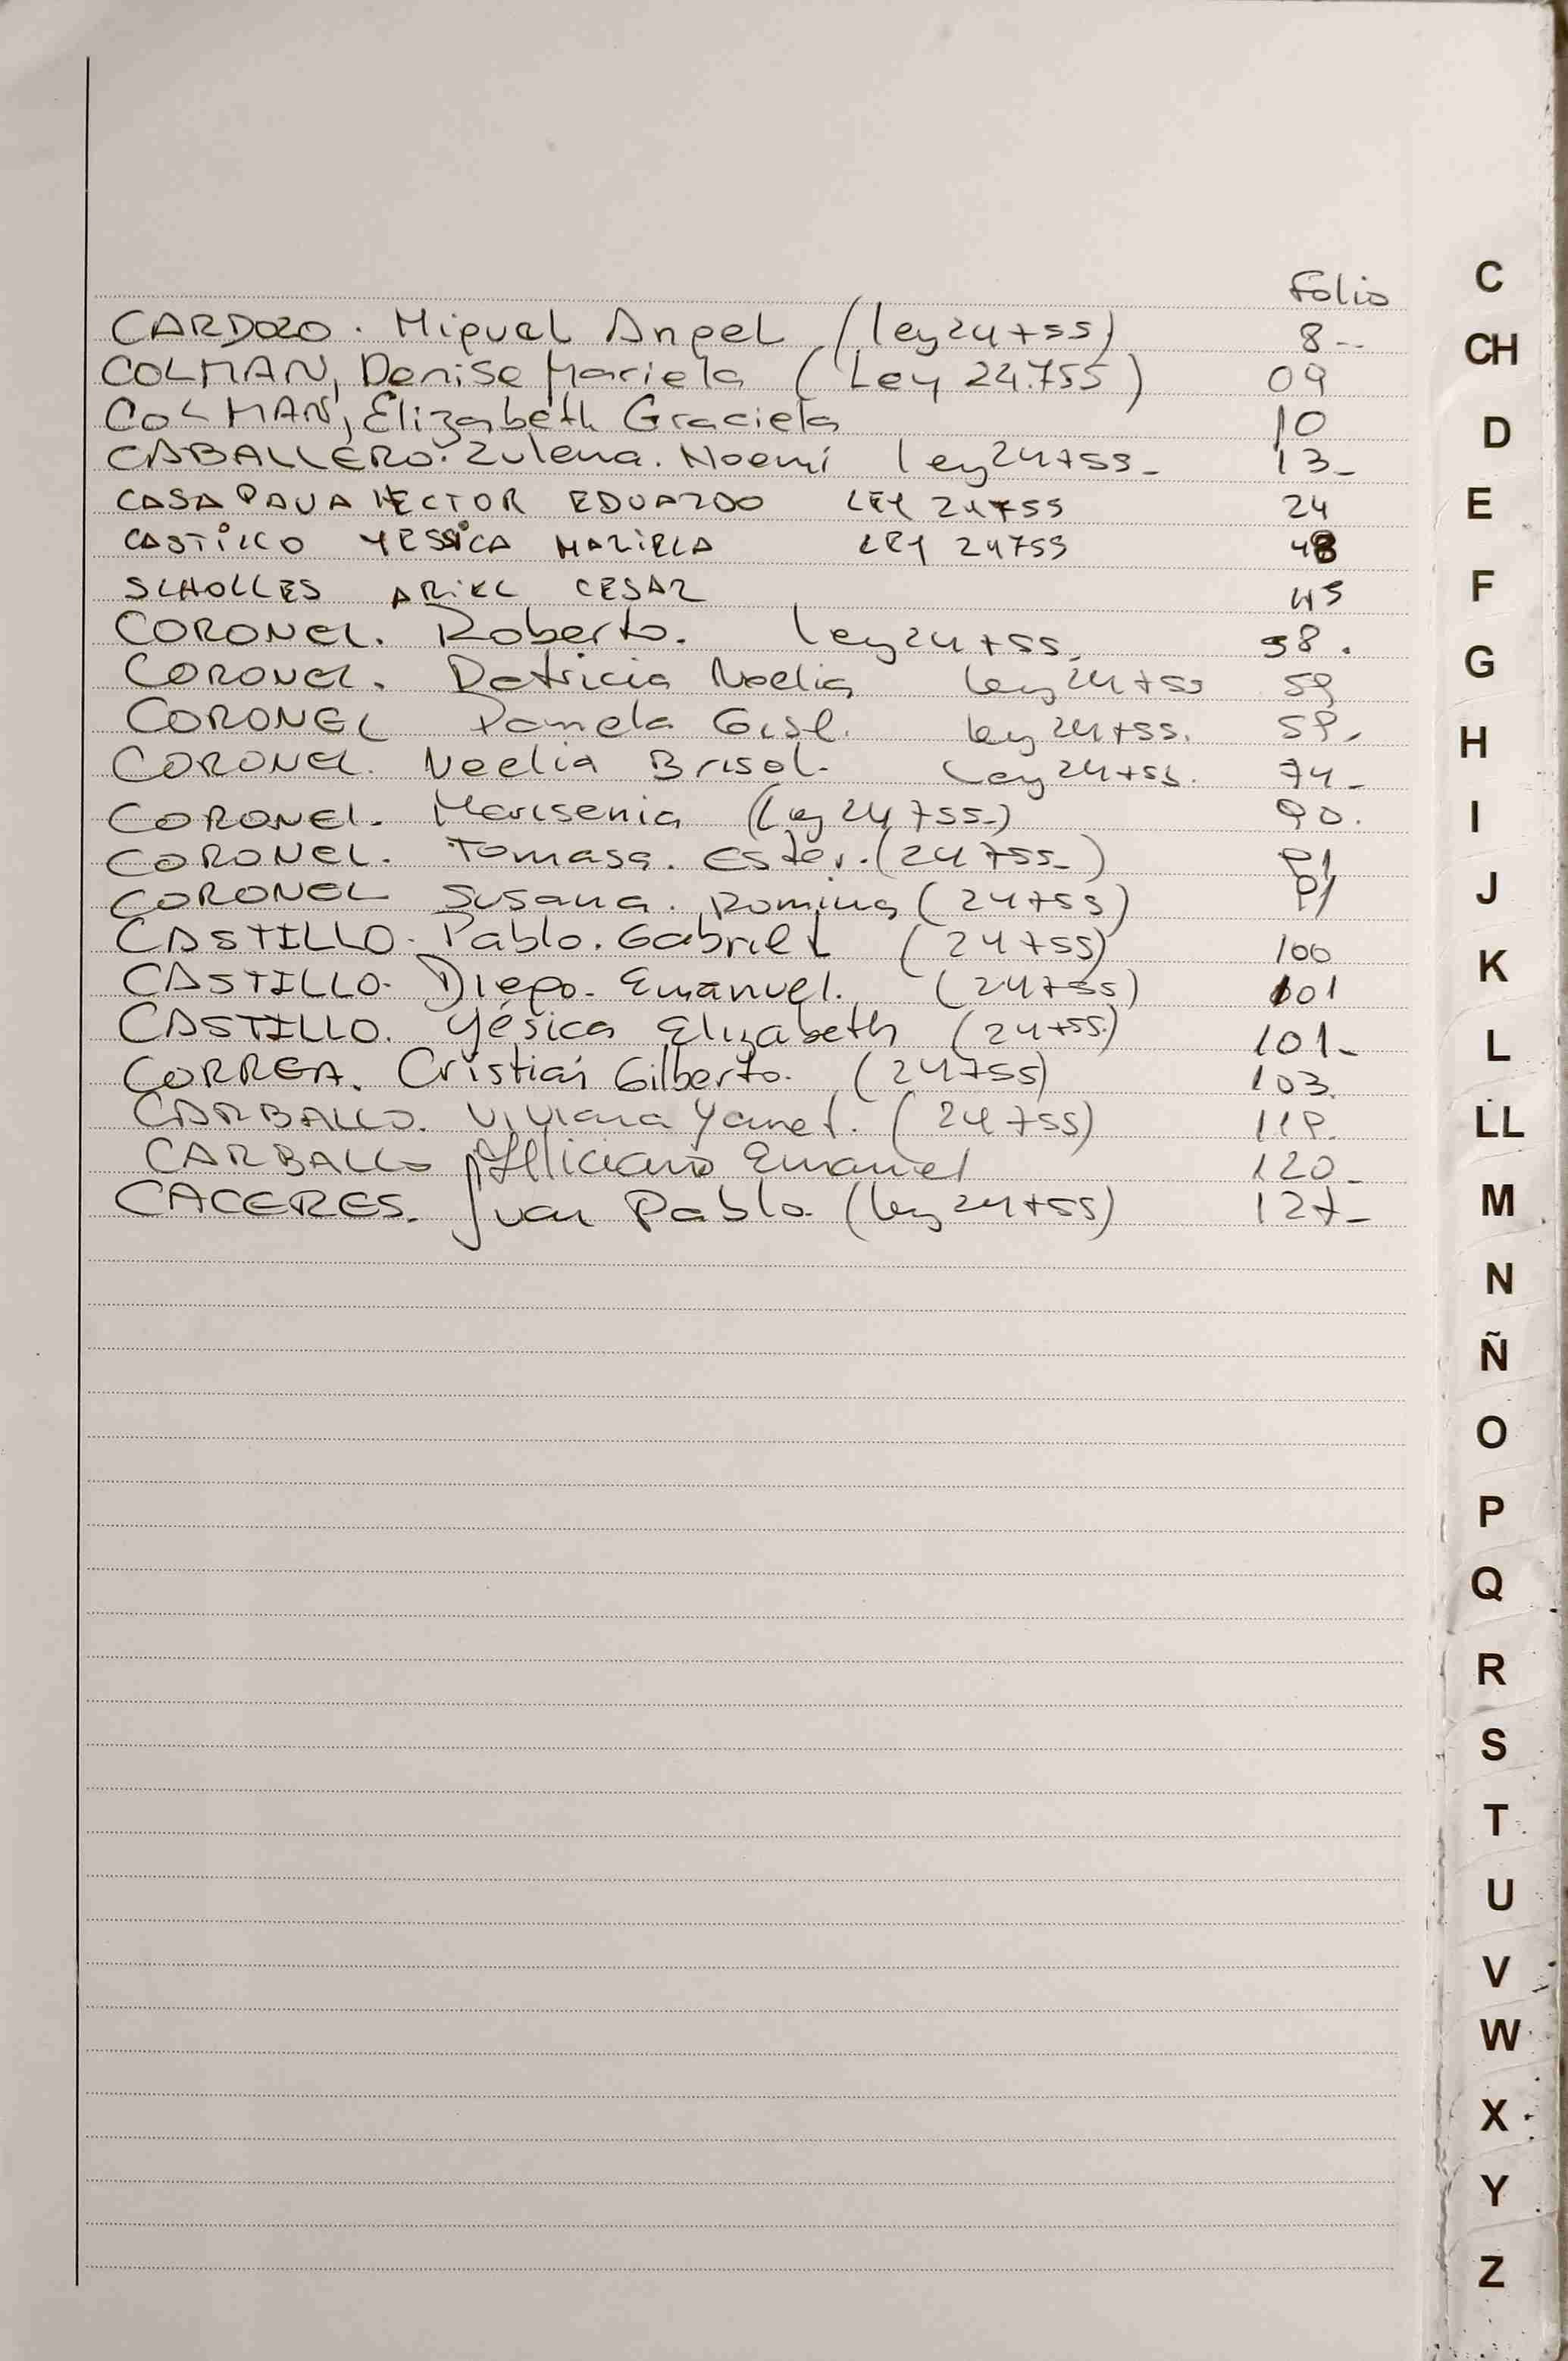 Folio
CARDOZO. Miguel Angel (ley 24755) 8--
COLMAN, Denise Mariela (Ley 24.755) 09
COLMAN, Elizabeth Graciela 10
CABALLERO. Zulema. Noemi ley 24755- 13-
CASA PAVA HECTOR EDUARDO LEY 24755 24
CASTILLO YESSICA MARIELA LEY 24755 43
SCHOLLES ARIEL CESAR 45
CORONEL. Roberto. ley 24755. 58.
CORONEL. Patricia Noelia ley 24755 59
CORONEL Pamela Gisl. ley 24755. 59-
CORONEL. Noelia Brisol. Ley 24755. 74-
CORONEL. Marisenia (Ley 24755-) 90.
CORONEL. Tomasa. Ester. (24755-) 91
CORONEL Susana. Romina (24755) 91
CASTILLO. Pablo. Gabriel (24755) 100
CASTILLO. Diego. Emanuel. (24755) 101
CASTILLO. Yésica Elizabeth (24755.) 101-
CORREA. Cristian Gilberto. (24755) 103.
CARBALLO. Viviana Yanet. (24755) 119.
CARBALLO Emanuel 120-
CACERES. Juan Pablo. (ley 24755) 127-
C
CH
D
E
F
G
H
I
J
K
L
LL
M
N
Ñ
O
P
Q
R
S
T
U
V
W
X
Y
Z